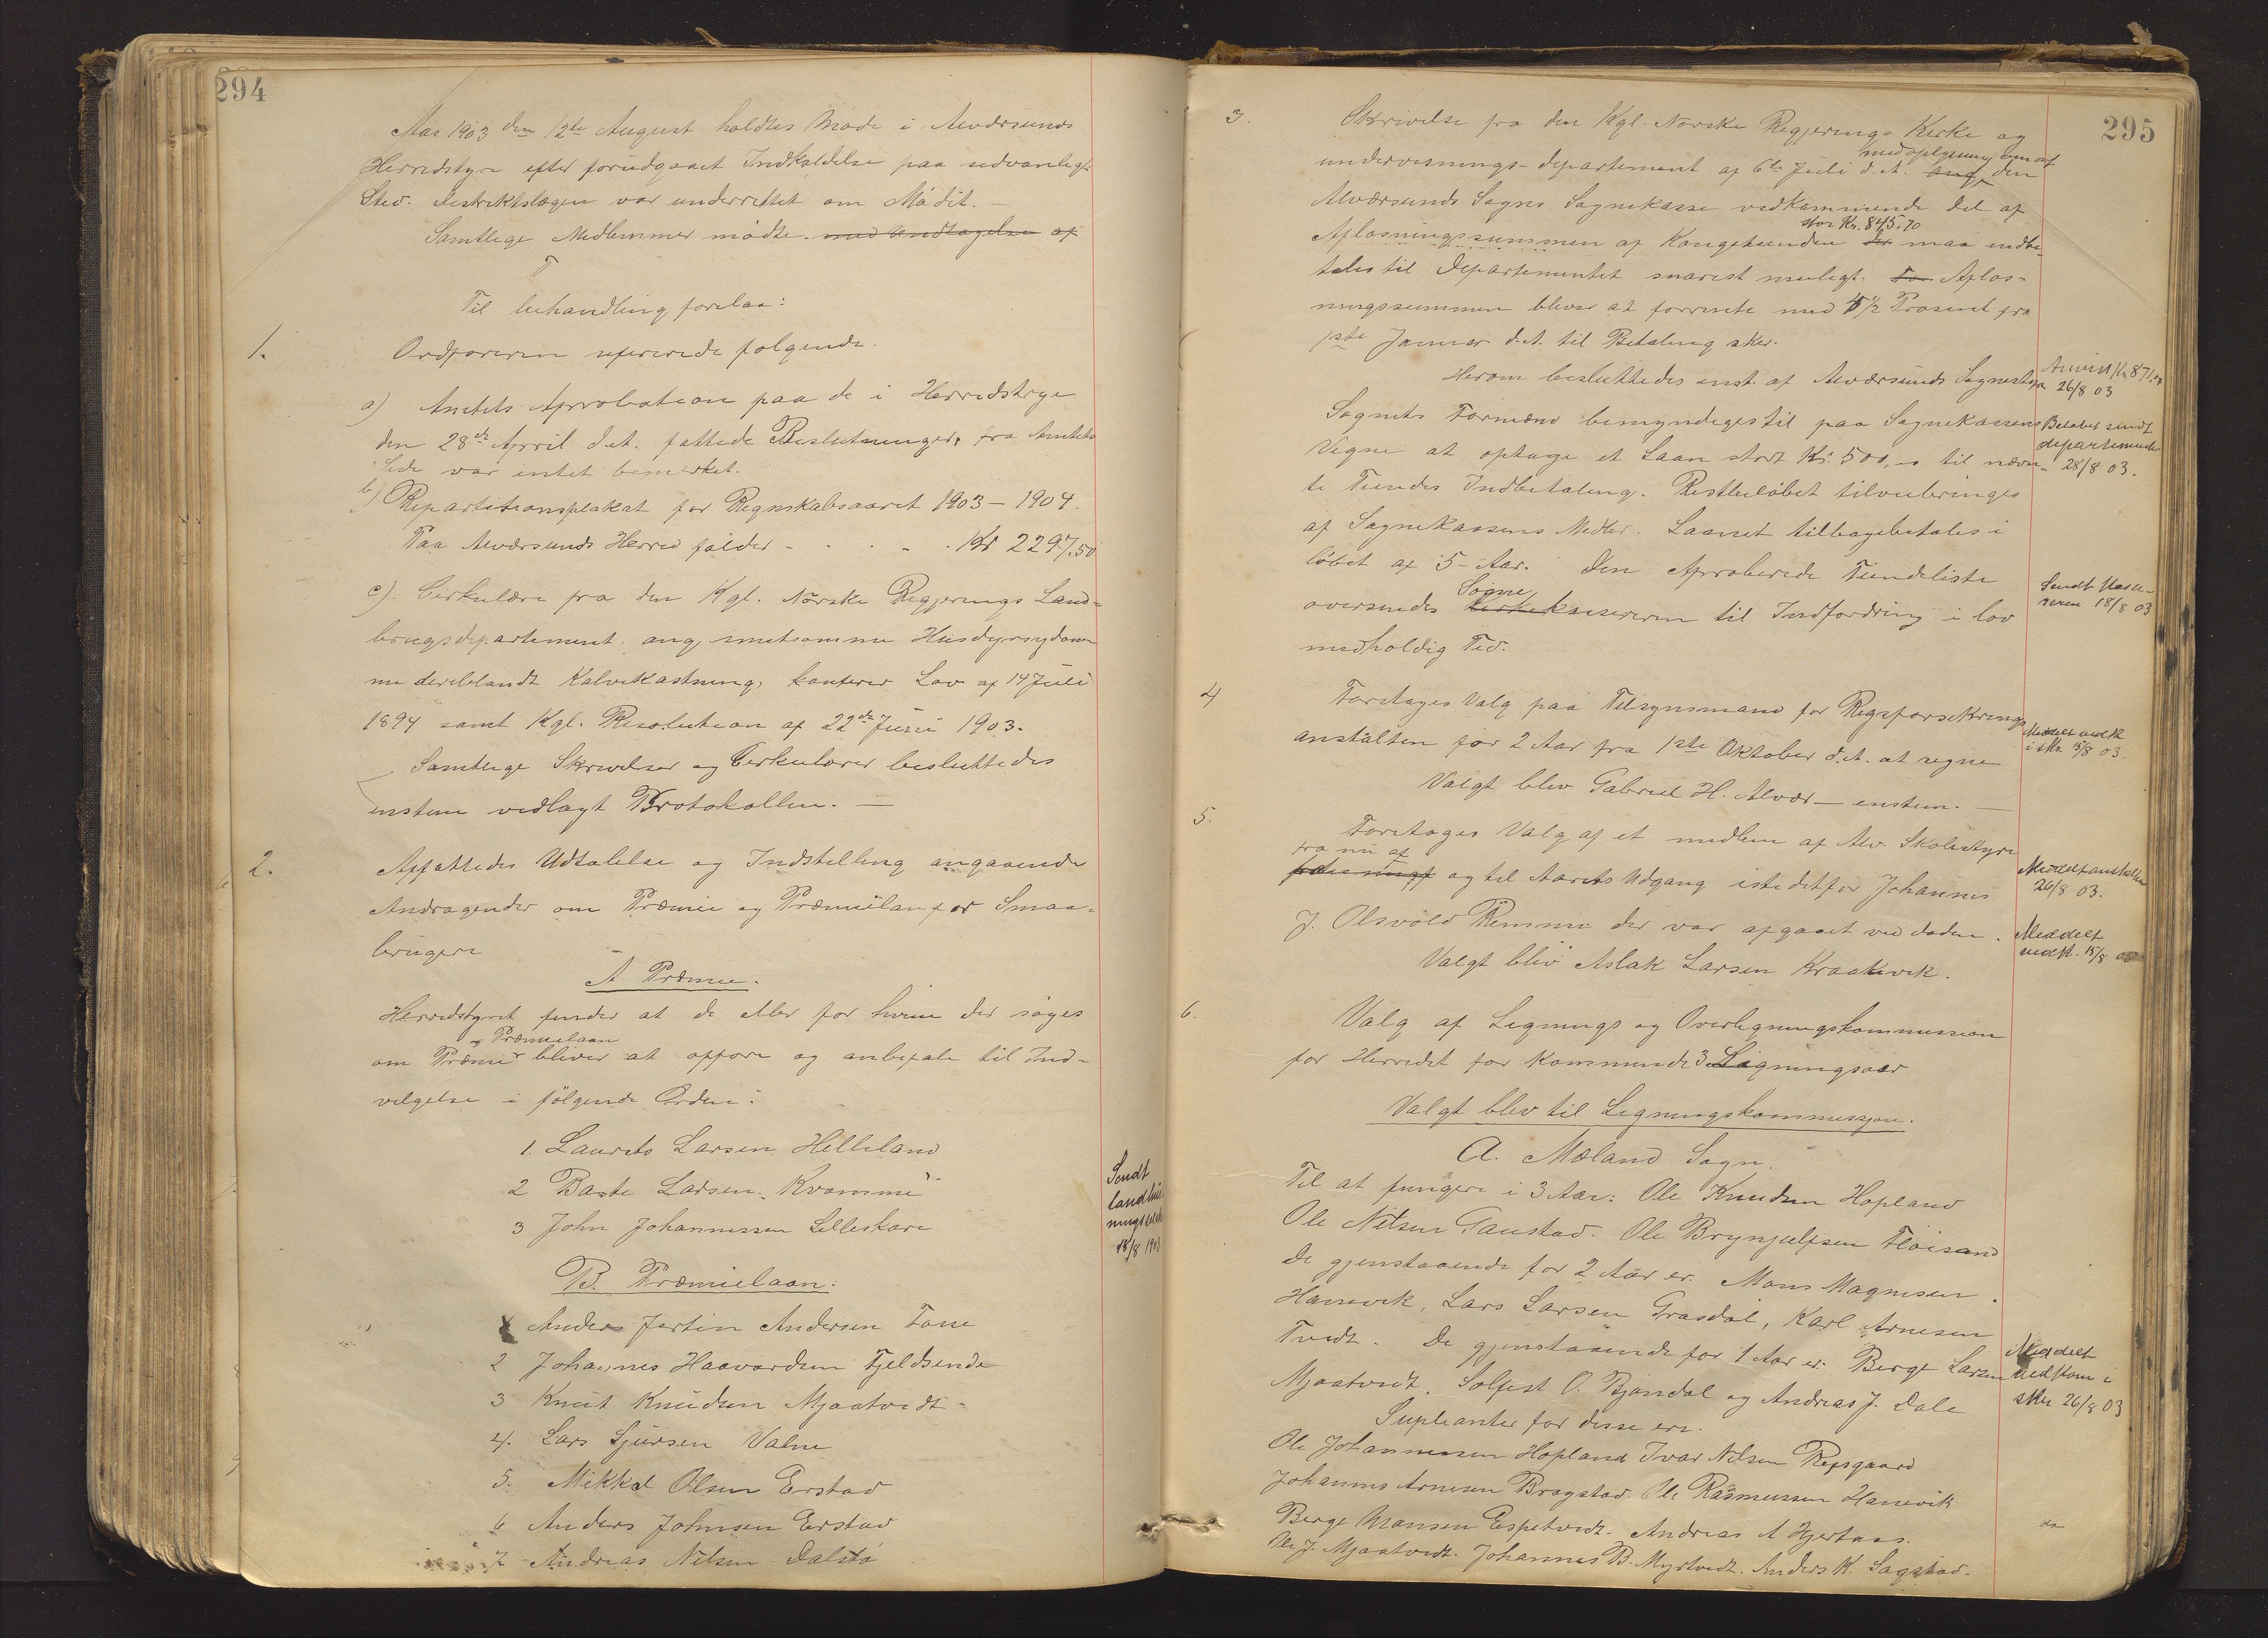 294
Aar 1903 den 12te August holdtes Møde i Alværsunds
Herredstyre efter forudgaaet Indkaldelse paa sedvanlegt
Sted. Destriktslægen var underrettet om Mödet. —
Samtlege Medlemmer mödte. med Undtagelse af
Til behandling forelaa:
1. Ordföreren refererede følgende.
a) Amtets Aprobation paa de i Herredstyre
den 28de April d.A. fattede Beslutninger, fra Amtets
Side var intet bemerket.
b) Repartitionsplakat for Regnskabsaaret 1903 – 1904.
Paa Alværsunds Herred falder - . . . . Kr 2297,50
c). Cirkulære fra den Kgl. Norske Regjerings Land=
brugsdepartement. ang. smetsomme Husdyrsygdom
me deriblandt Kalvekastning, konferer Lov af 14 Juli
1894 samt Kgl. Resolution af 22de Juni 1903.
Samtlege Skrivelser og Cirkulærer besluttedes
enstem vedlagt Protokollen. —
2. Affattedes Udtalelse og Indstelling angaaende
Andragender om Præmie og Præmielan for Smaa=
brugere
A Præmie.
Herredstyret finder at de eller for hvem der söges
og Præmielaan
om Præmie bliver at opföre og anbefale til Ind=
velgelse i fölgende Orden:
1. Laurits Larsen Helleland
2 Baste Larsen Kvamme
3 John Johannessen Lilleskare
B. Præmielaan.
1 Anders Jertin Andersen Tone
2 Johannes Haavardsen Fjeldsende
3 Knut Knudsen Mjaatvedt
4. Lars Sjursen Valne
5. Mikkel Olsen Erstad
6 Anders Johnsen Erstad
7 Andreas Nilsen Dalstö
Sendt
landhus
nings
18/8 1903
295
3. Skrivelse fra den Kgl. Norske Regjerings Kerke og
med oplysning om at
undervisnings-departement af 6te Juli d.A. ang. den
Alværsunds Sogns Sognekasse vedkommende del af
stor Kr. 845.70
Aflösningssummen af Kongetienden der maa indbe-
tales til Departementet snarest mulegt. Aflös-
ningssummen bliver at forrente med 4 1/2 Prosent fra
1ste Januar d.A. til Betaling sker.
Herom besluttedes enst. af Alværsunds Sognestyre
Sognets Formænd bemyndeges til paa Sognekassens
Vegne at optage et Laan stort Kr. 500,00 til nævn-
te Tiendes Indbetaling. Restbelöbet tilveiebringes
af Sognekassens Medler. Laanet tilbagebetales i
löbet af 5-Aar. Den Aproberede Tiendeliste
Sogne
oversendes Kerkekassereren til Indfordring i lov
medholdig Ted.
Anvist Kr 871.
26/8 03
Beløbet sendt
departementet
28/8 03.
Sendt Kasse-
reren 18/8 03
4 Foretages Valg paa Tilsynsmand for Rigsforsikrings
anstalten for 2 Aar fra 1ste Oktober d.A. at regne
Valgt blev Gabriel H. Alvær — enstem. —
Meddelt vedk
i skr. 15/8 03.
5. Foretoges Valg af et medlem af Alv. Skolestyre
fra nu af
og til Aarets Udgang istedetfor Johannes
J. Olsvold Remme der var afgaaet ved døden.
Valgt blev Aslak Larsen Kraakevik.
Meddelt anstalten
26/8 03.
Meddelt
vedk. 15/8 03
6. Valg af Legnings og Overlegningskommission
for Herredet for kommende 3 Ligningsaar
Valgt blev til Legningskommessjon.
A. Mæland Sogn.
Til at fungere i 3 Aar: Ole Knudsen Hopland
Ole Nilsen Gaustad. Ole Brynjulfsen Flöisand
De gjenstaaende for 2 Aar er. Mons Magnesen
Hanevik, Lars Larsen Grasdal, Karl Arnesen
Tvedt. De gjenstaaende for 1 Aar er. Berge Larsen
Mjaatvedt. Solfest O. Bjöndal og Andreas J. Dale
Meddelt
vedkom i
skr 26/8 03
Supleanter for disse er.
Ole Johannessen Hopland Ivar Nilsen Refsgaard
Johannes Arnesen Brogstad. Ole Rasmussen Hanevik
Berge Monsen Espetvedt. Andreas A Hjertaas.
Ole J. Mjaatvedt. Johannes B. Myrtvedt. Anders K. Sagstad.
do